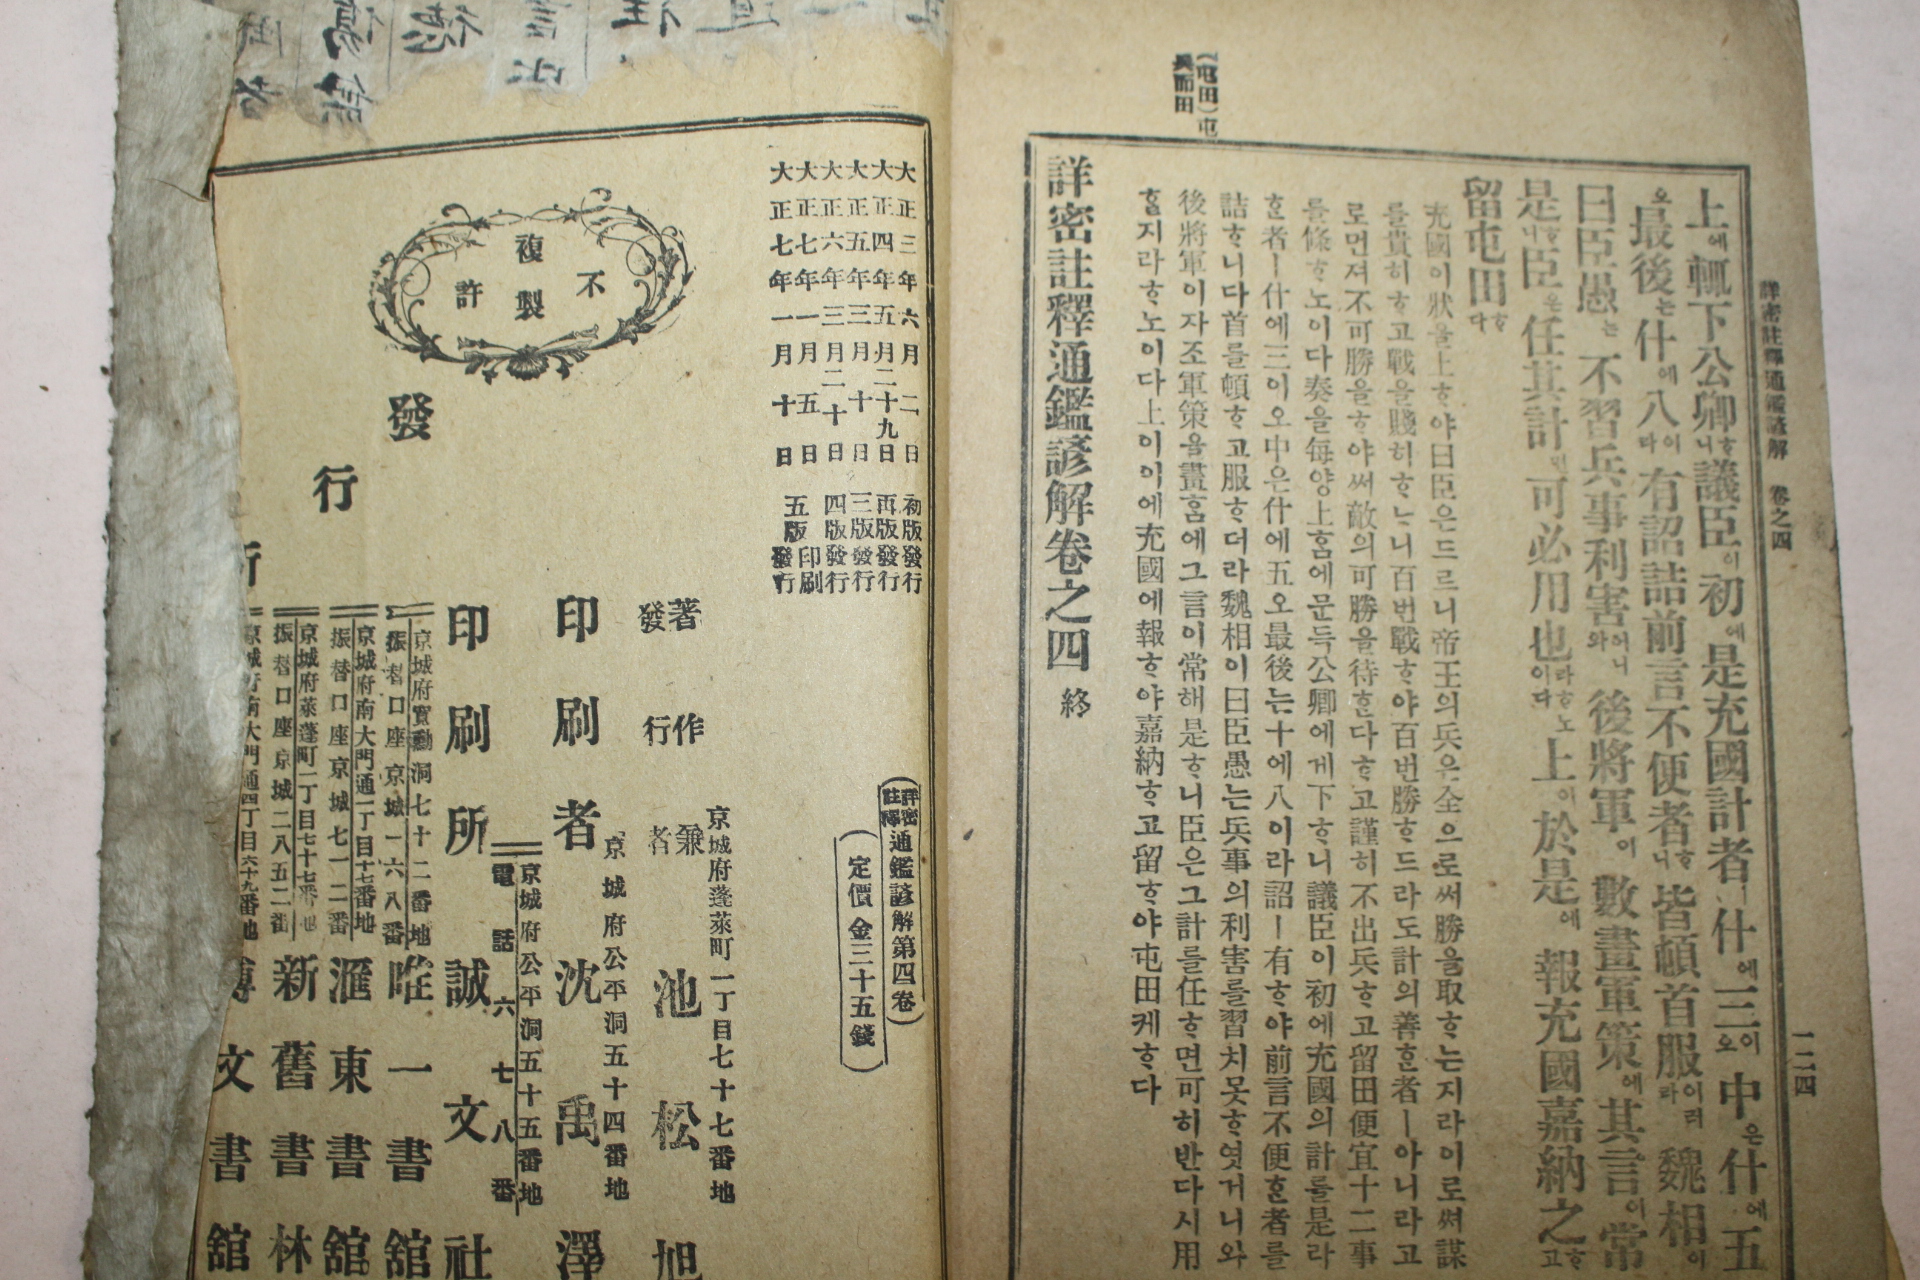 詳密註釋通鑑諺解 卷之四 一二四
(屯田)屯
兵而田
上에輒下公卿ᄒᆞ니議臣이初에是充國計者ㅣ什에三이오中은什에五
오最後는什에八이라有詔詰前言不便者ᄒᆞ니皆頓首服이러라魏相이
曰臣愚는不習兵事利害어니와後將軍이數畫軍策에其言이常
是ᄒᆞ니臣은任其計면可必用也이다라ᄒᆞ노上이於是에報充國嘉納之ᄒᆞ고
留屯田ᄒᆞ다
充國이狀을上ᄒᆞ야曰臣은드르니帝王의兵은全으로써勝을取ᄒᆞ는지라이로써謀
를貴히ᄒᆞ고戰을賤히ᄒᆞᄂᆞ니百번戰ᄒᆞ야百번勝ᄒᆞ드라도計의善ᄒᆞᆫ者ㅣ아니라고
로먼져不可勝을ᄒᆞ야써敵의可勝을待ᄒᆞᆫ다ᄒᆞ고謹히不出兵ᄒᆞ고留田便宜十二事
를條ᄒᆞ노이다奏을每양上ᄒᆞᆷ에문득公卿에게下ᄒᆞ니議臣이初에充國의計를是라
ᄒᆞᆫ者ㅣ什에三이오中은什에五오最後는十에八이라詔ㅣ有ᄒᆞ야前言不便ᄒᆞᆫ者를
詰ᄒᆞ니다首를頓ᄒᆞ고服ᄒᆞ더라魏相이曰臣愚는兵事의利害를習치못ᄒᆞ엿거니와
後將軍이자조軍策을畫ᄒᆞᆷ에그言이常해是ᄒᆞ니臣은그計를任ᄒᆞ면可히반다시用
ᄒᆞᆯ지라ᄒᆞ노이다上이이에充國에報ᄒᆞ야嘉納ᄒᆞ고留ᄒᆞ야屯田케ᄒᆞ다
詳密註釋通鑑諺解卷之四 終
大正三年六月二日 初版發行
大正四年五月二十九日 再版發行
大正五年三月十日 三版發行
大正六年三月二十日 四版發行
大正七年一月五日 五版印刷
大正七年一月十日 發行
詳密註釋 通鑑諺解第四卷
定價金三十五錢
不許複製
京城府蓬萊町一丁目七十七番地
著作兼
發行者 池松旭
京城府公平洞五十四番地
印刷者 沈禹澤
京城府公平洞五十五番地
印刷所 誠文社
電話六七八番
發行所
京城府寬勳洞七十二番地
振替口座京城一六八番
唯一書館
京城府南大門通一丁目十七番地
振替口座京城七一二番
滙東書館
京城府蓬萊町一丁目七十七番地
振替口座京城二八五二番
新舊書林
京城府南大門通四丁目六十九番地
博文書館